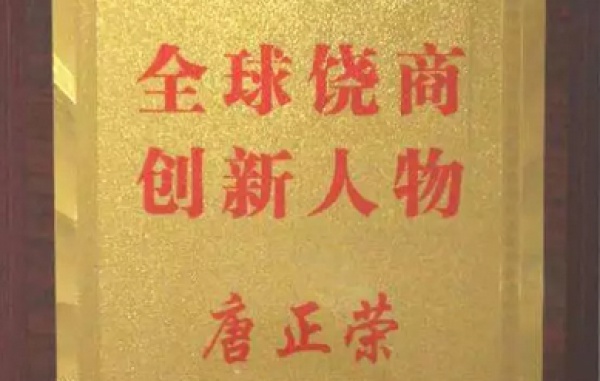 全球饶商
创新人物
唐正荣